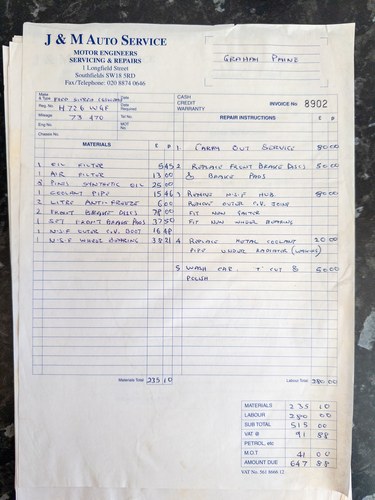 J & M AUTO SERVICE
MOTOR ENGINEERS
SERVICING & REPAIRS
1 Longfield Street
Southfields SW18 5RD
Fax/Telephone: 020 8874 0646
GRAHAM PAINE
Make & Type FORD SIERRA
Date Received
CASH
CREDIT
WARRANTY
INVOICE No 8902
Reg. No. H726 WGF
Date Required
Mileage 73 470
Tel No.
Eng No.
MOT No.
Chassis No.
REPAIR INSTRUCTIONS £ P
MATERIALS £ P
1 CARRY OUT SERVICE 80 00
1 OIL FILTER 5 45
2 REPLACE FRONT BRAKE DISCS 50 00
1 AIR FILTER 13 00
& BRAKE PADS
5 PINTS SYNTHETIC OIL 25 00
1 COOLANT PIPE 15 46
3 REMOVE N.S.F HUB 80 00
2 LITRE ANTI-FREEZE 6 00
REMOVE OUTER C.V. JOINT
2 FRONT BRAKE DISCS 78 00
FIT NEW GAITER
1 SET FRONT BRAKE PADS 37 50
FIT NEW WHEEL BEARING
1 N.S.F OUTER C.V. BOOT 16 48
1 N.S.F WHEEL BEARING 38 21
4 REPLACE METAL COOLANT 20 00
PIPE UNDER RADIATOR
5 WASH CAR, T CUT & 50 00
POLISH
Materials Total 235 10
Labour Total 280 00
MATERIALS 235 10
LABOUR 280 00
SUB TOTAL 515 00
VAT @ 91 88
PETROL, etc
M.O.T 41 00
AMOUNT DUE 647 88
VAT No. 561 0666 12